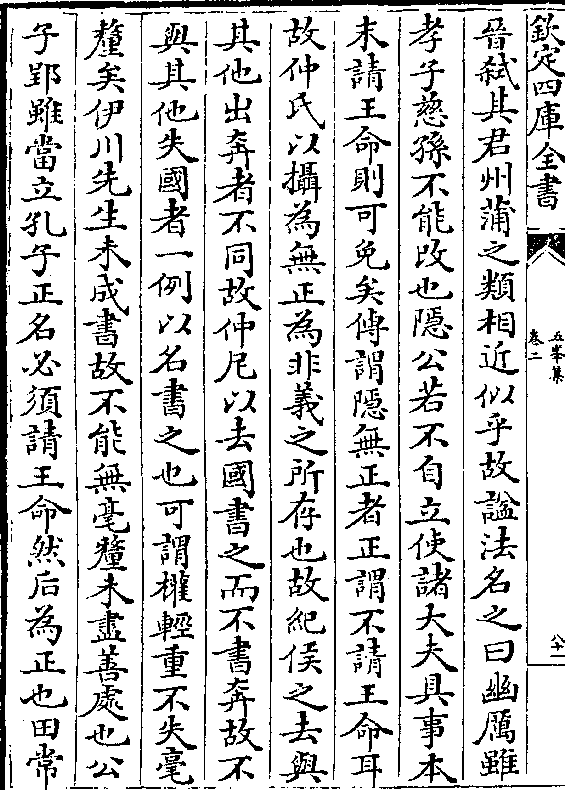 欽定四庫全書
五峯集
卷二
八十一
晉弑其君州蒲之類相近似乎故諡法名之曰幽厲雖
孝子慈孫不能改也隱公若不自立使諸大夫具事本
末請王命則可免矣傳謂隱無正者正謂不請王命耳
故仲氏以攝為無正為非義之所存也故紀侯之去與
其他出奔者不同故仲尼以去國書之而不書奔故不
與其他失國者一例以名書之也可謂權輕重不失毫
釐矣伊川先生未成書故不能無毫釐未盡善處也公
子郢雖當立孔子正名必須請王命然后為正也田常